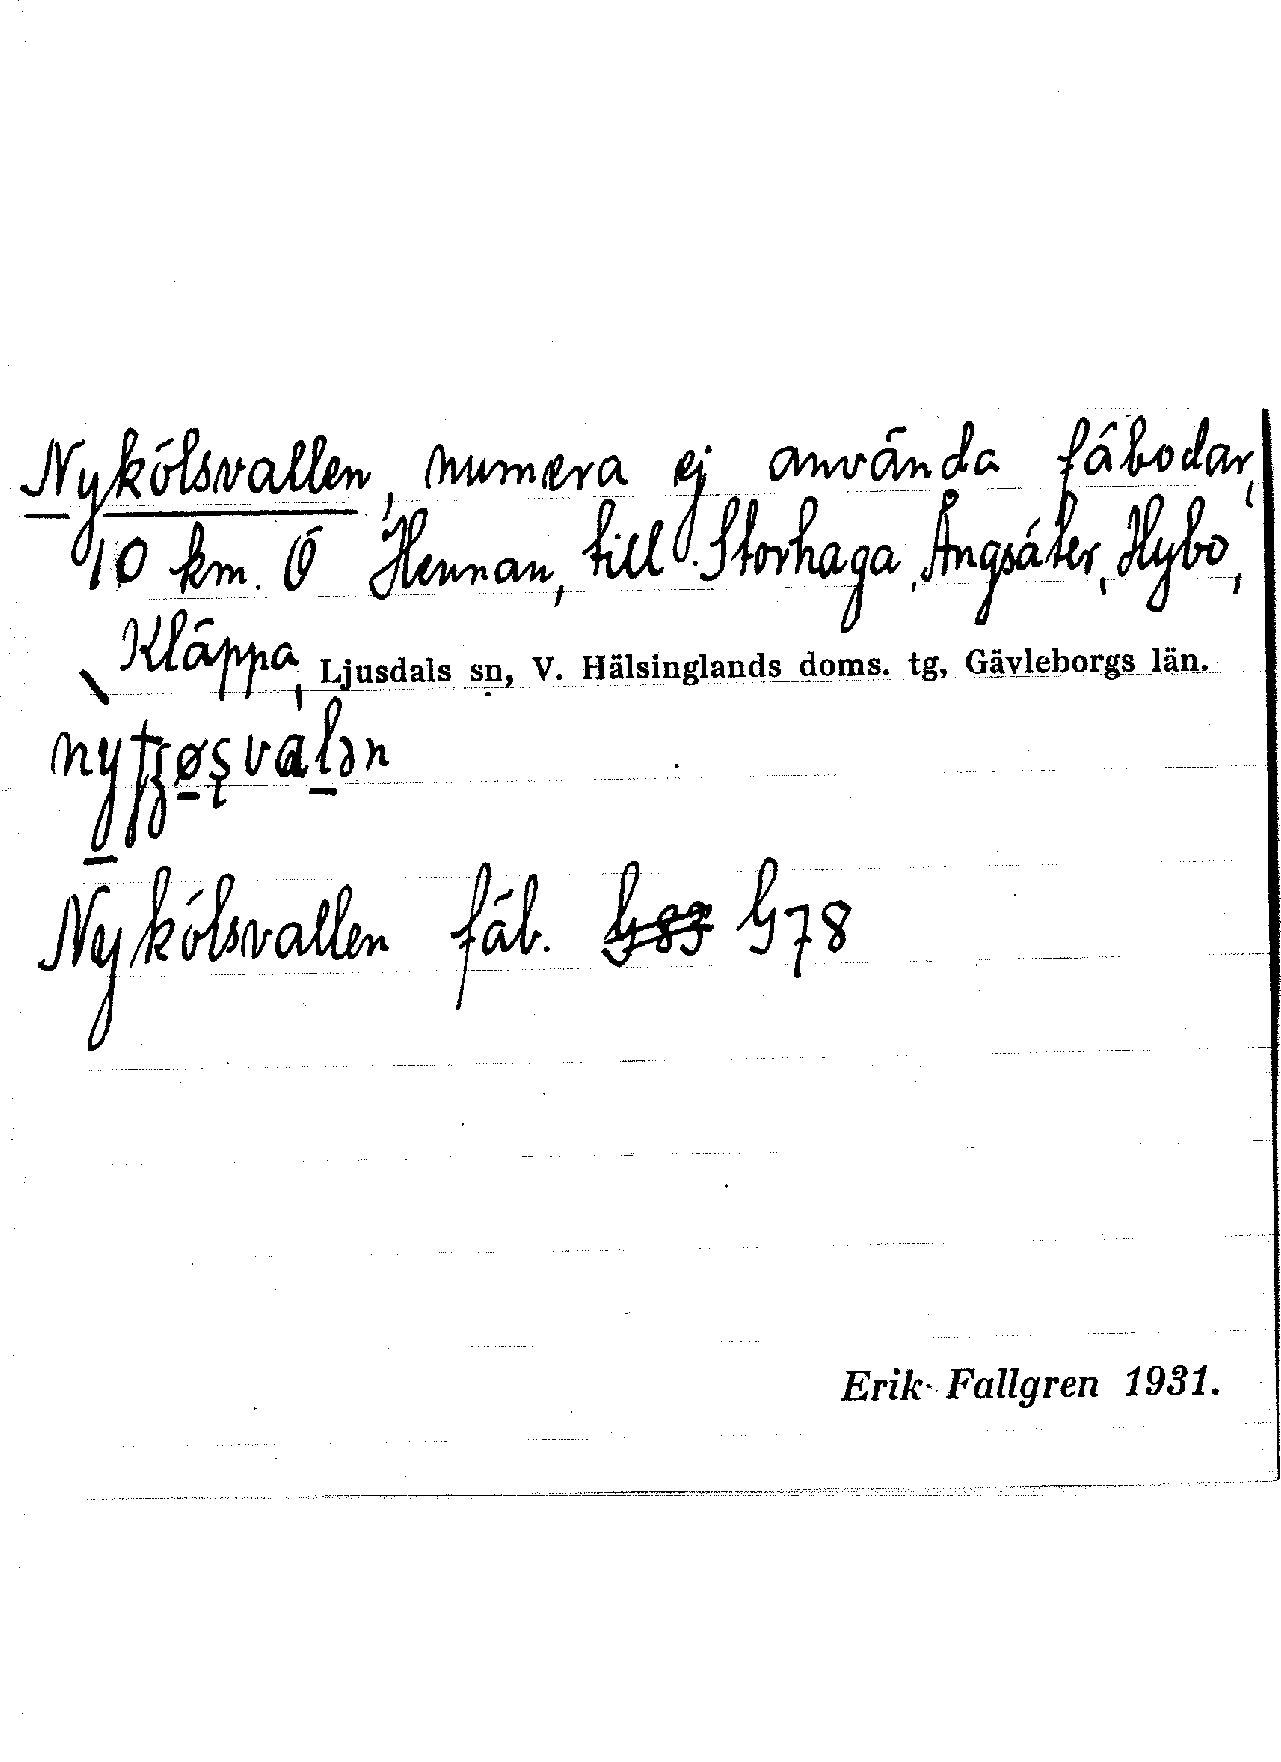 Nykölsvallen, numera ej använda fäbodar,
10 km. Ö Hennan, till Storhaga, Ängsäter, Hybo,
Kläppa, Ljusdals sn, V. Hälsinglands doms. tg, Gävleborgs län.
Nykölsvallen fäb. G 83 G 78
Erik Fallgren 1931.